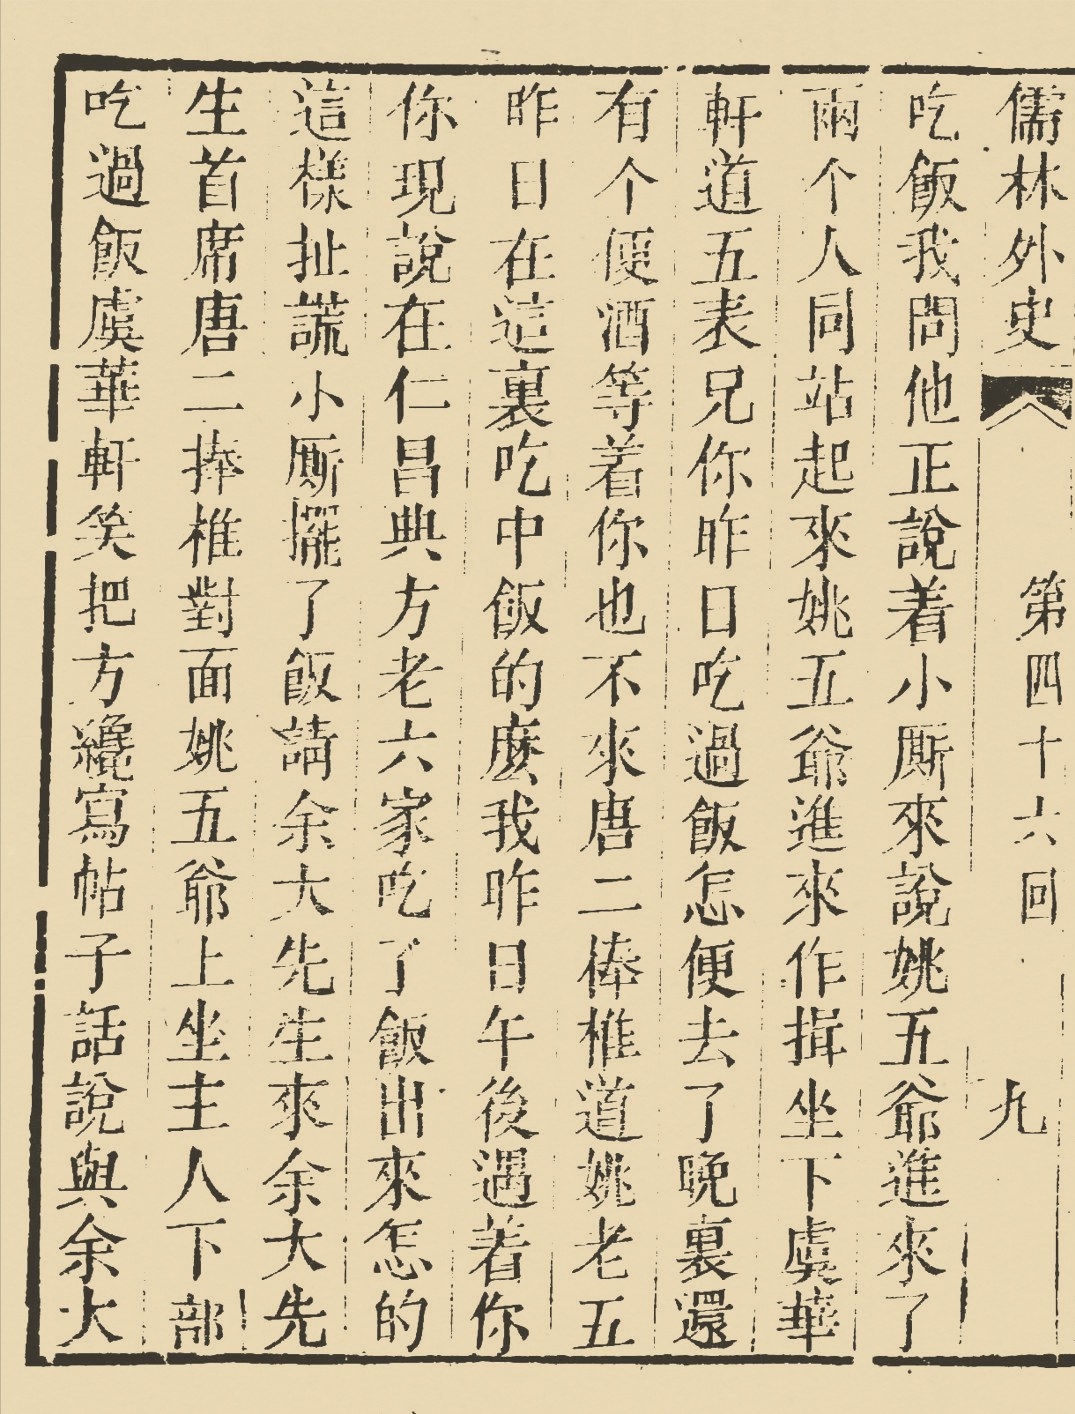 儒林外史 第四十六回 九
吃飯我問他正說着小厮來說姚五爺進來了
兩个人同站起來姚五爺進來作揖坐下虞華
軒道五表兄你昨日吃過飯怎便去了晚裏還
有个便酒等着你也不來唐二棒椎道姚老五
昨日在這裏吃中飯的麽我昨日午後遇着你
你現說在仁昌典方老六家吃了飯出來怎的
這樣扯謊小厮擺了飯請余大先生來余大先
生首席唐二捧椎對面姚五爺上坐主人下部
吃過飯虞華軒笑把方纔寫帖子話說與余大